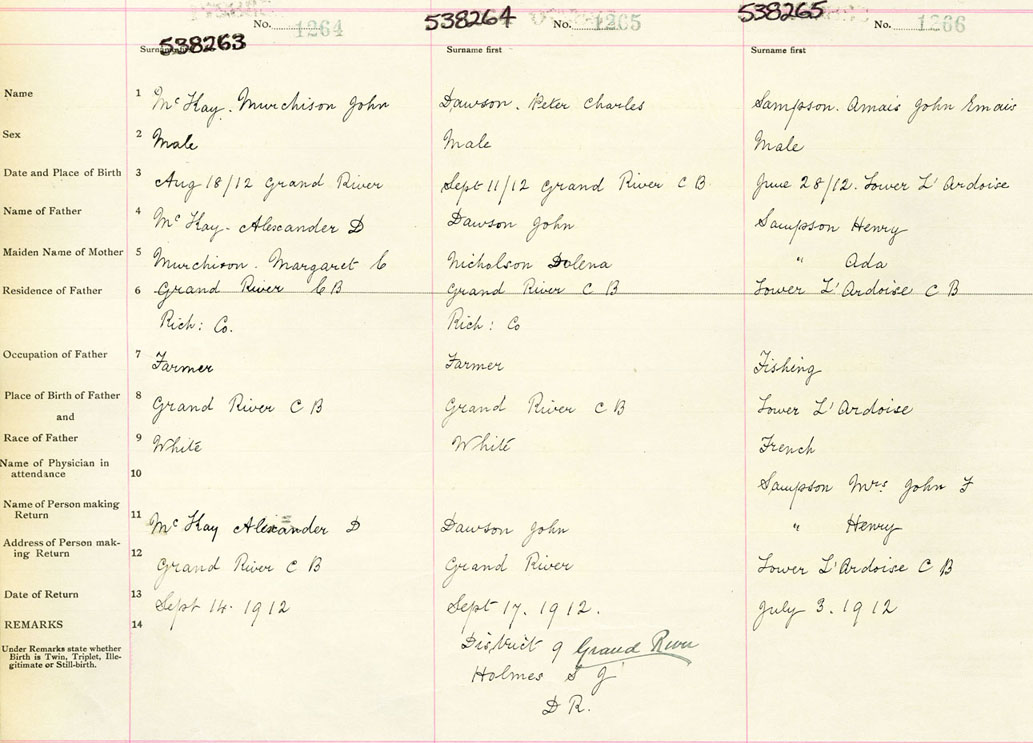 538263 No. 1264 538264 No. 1265 538265 No. 1266
Surname first Surname first Surname first
Name 1 McKay. Murchison John Dawson. Peter Charles Sampson. Amais John Emais
Sex 2 Male Male Male
Date and Place of Birth 3 Aug 18/12 Grand River Sept 11/12 Grand River C B. June 28/12. Lower L'Ardoise
Name of Father 4 McKay - Alexander D Dawson John Sampson Henry
Maiden Name of Mother 5 Murchison. Margaret C Nicholson Dolena " Ada
Residence of Father 6 Grand River C B Grand River C B Lower L'Ardoise C B
Rich: Co. Rich: Co
Occupation of Father 7 Farmer Farmer Fishing
Place of Birth of Father 8 Grand River C B Grand River C B Lower L'Ardoise
and
Race of Father 9 White White French
Name of Physician in attendance 10 Sampson Mrs John F
Name of Person making Return 11 McKay Alexander D Dawson John " Henry
Address of Person mak-ing Return 12 Grand River C B Grand River Lower L'Ardoise C B
Date of Return 13 Sept 14. 1912 Sept 17. 1912. July 3. 1912
REMARKS 14
Under Remarks state whether
Birth is Twin, Triplet, Ille-
gitimate or Still-birth.
District 9 Grand River
Holmes S J
D R.